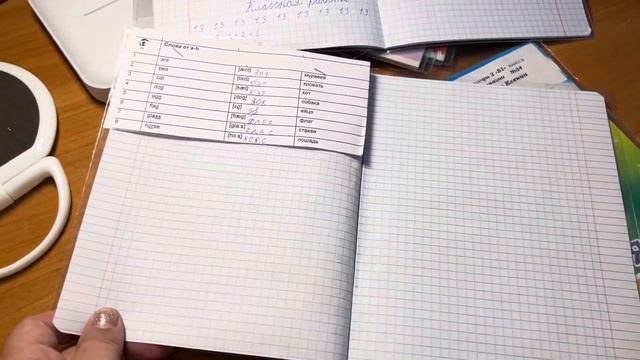 Классная работа
13 13 13 13 13 13 13 13 13
Слова от a-h
1 ant [ænt] энт муравей
2 bed [bed] кровать
3 cat [kæt] кэт кот
4 dog [dog] собака
5 egg [eg] эг яйцо
6 flag [flæg] флэг флаг
7 glass [gla:s] глас стакан
8 horse [ho:s] хорс лошадь
2 «Б» класса
№34
Ксении